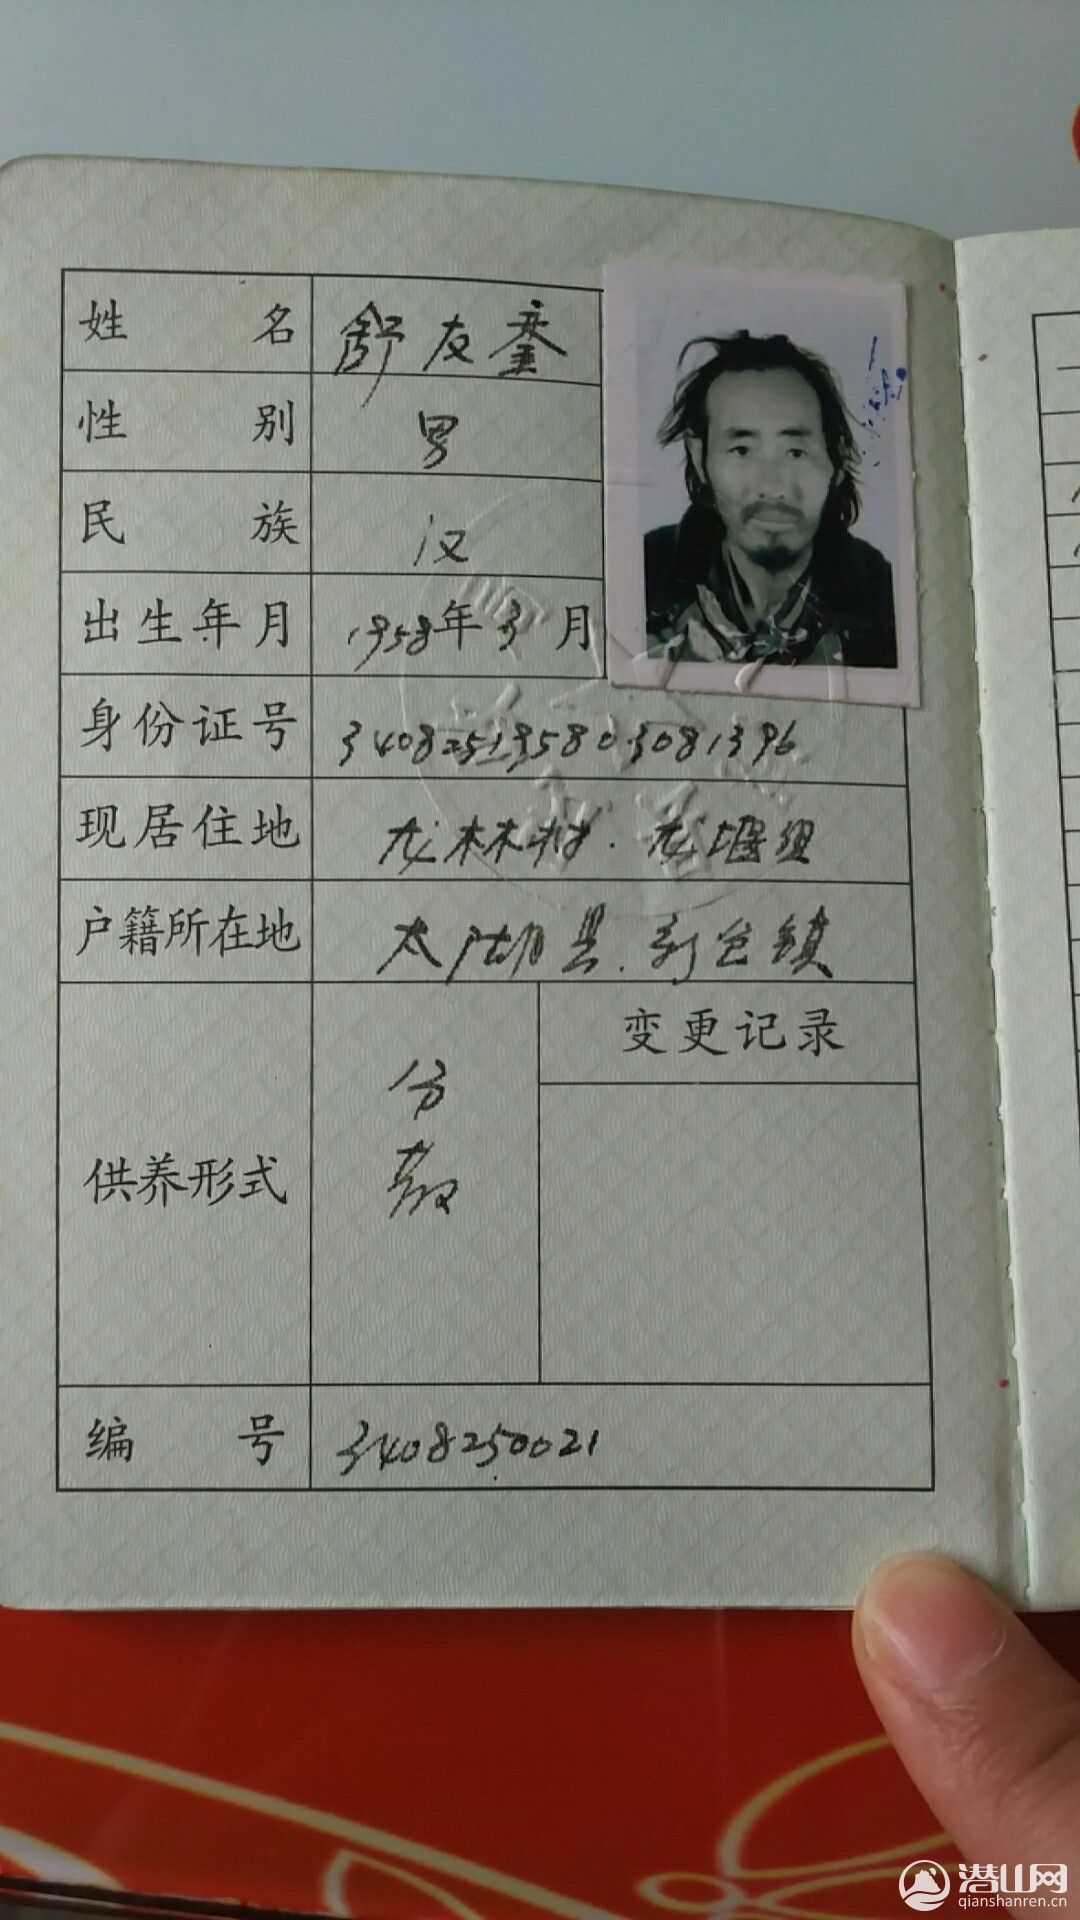 姓名 舒友奎
性别 男
民族 汉
出生年月 1958年3月
身份证号 340825195803081396
现居住地 龙林村.龙堰组
户籍所在地 太湖县.新仓镇
供养形式 分散
变更记录
编号 3408250021
潜山网
qianshanren.cn